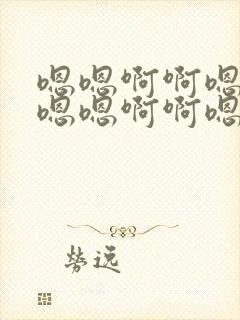 嗯嗯啊啊嗯
嗯嗯啊啊嗯
劳远